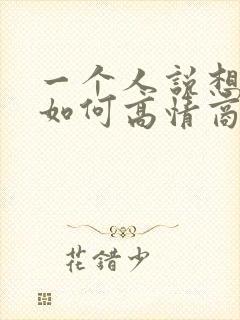 一个人说想
如何高情商
花错少